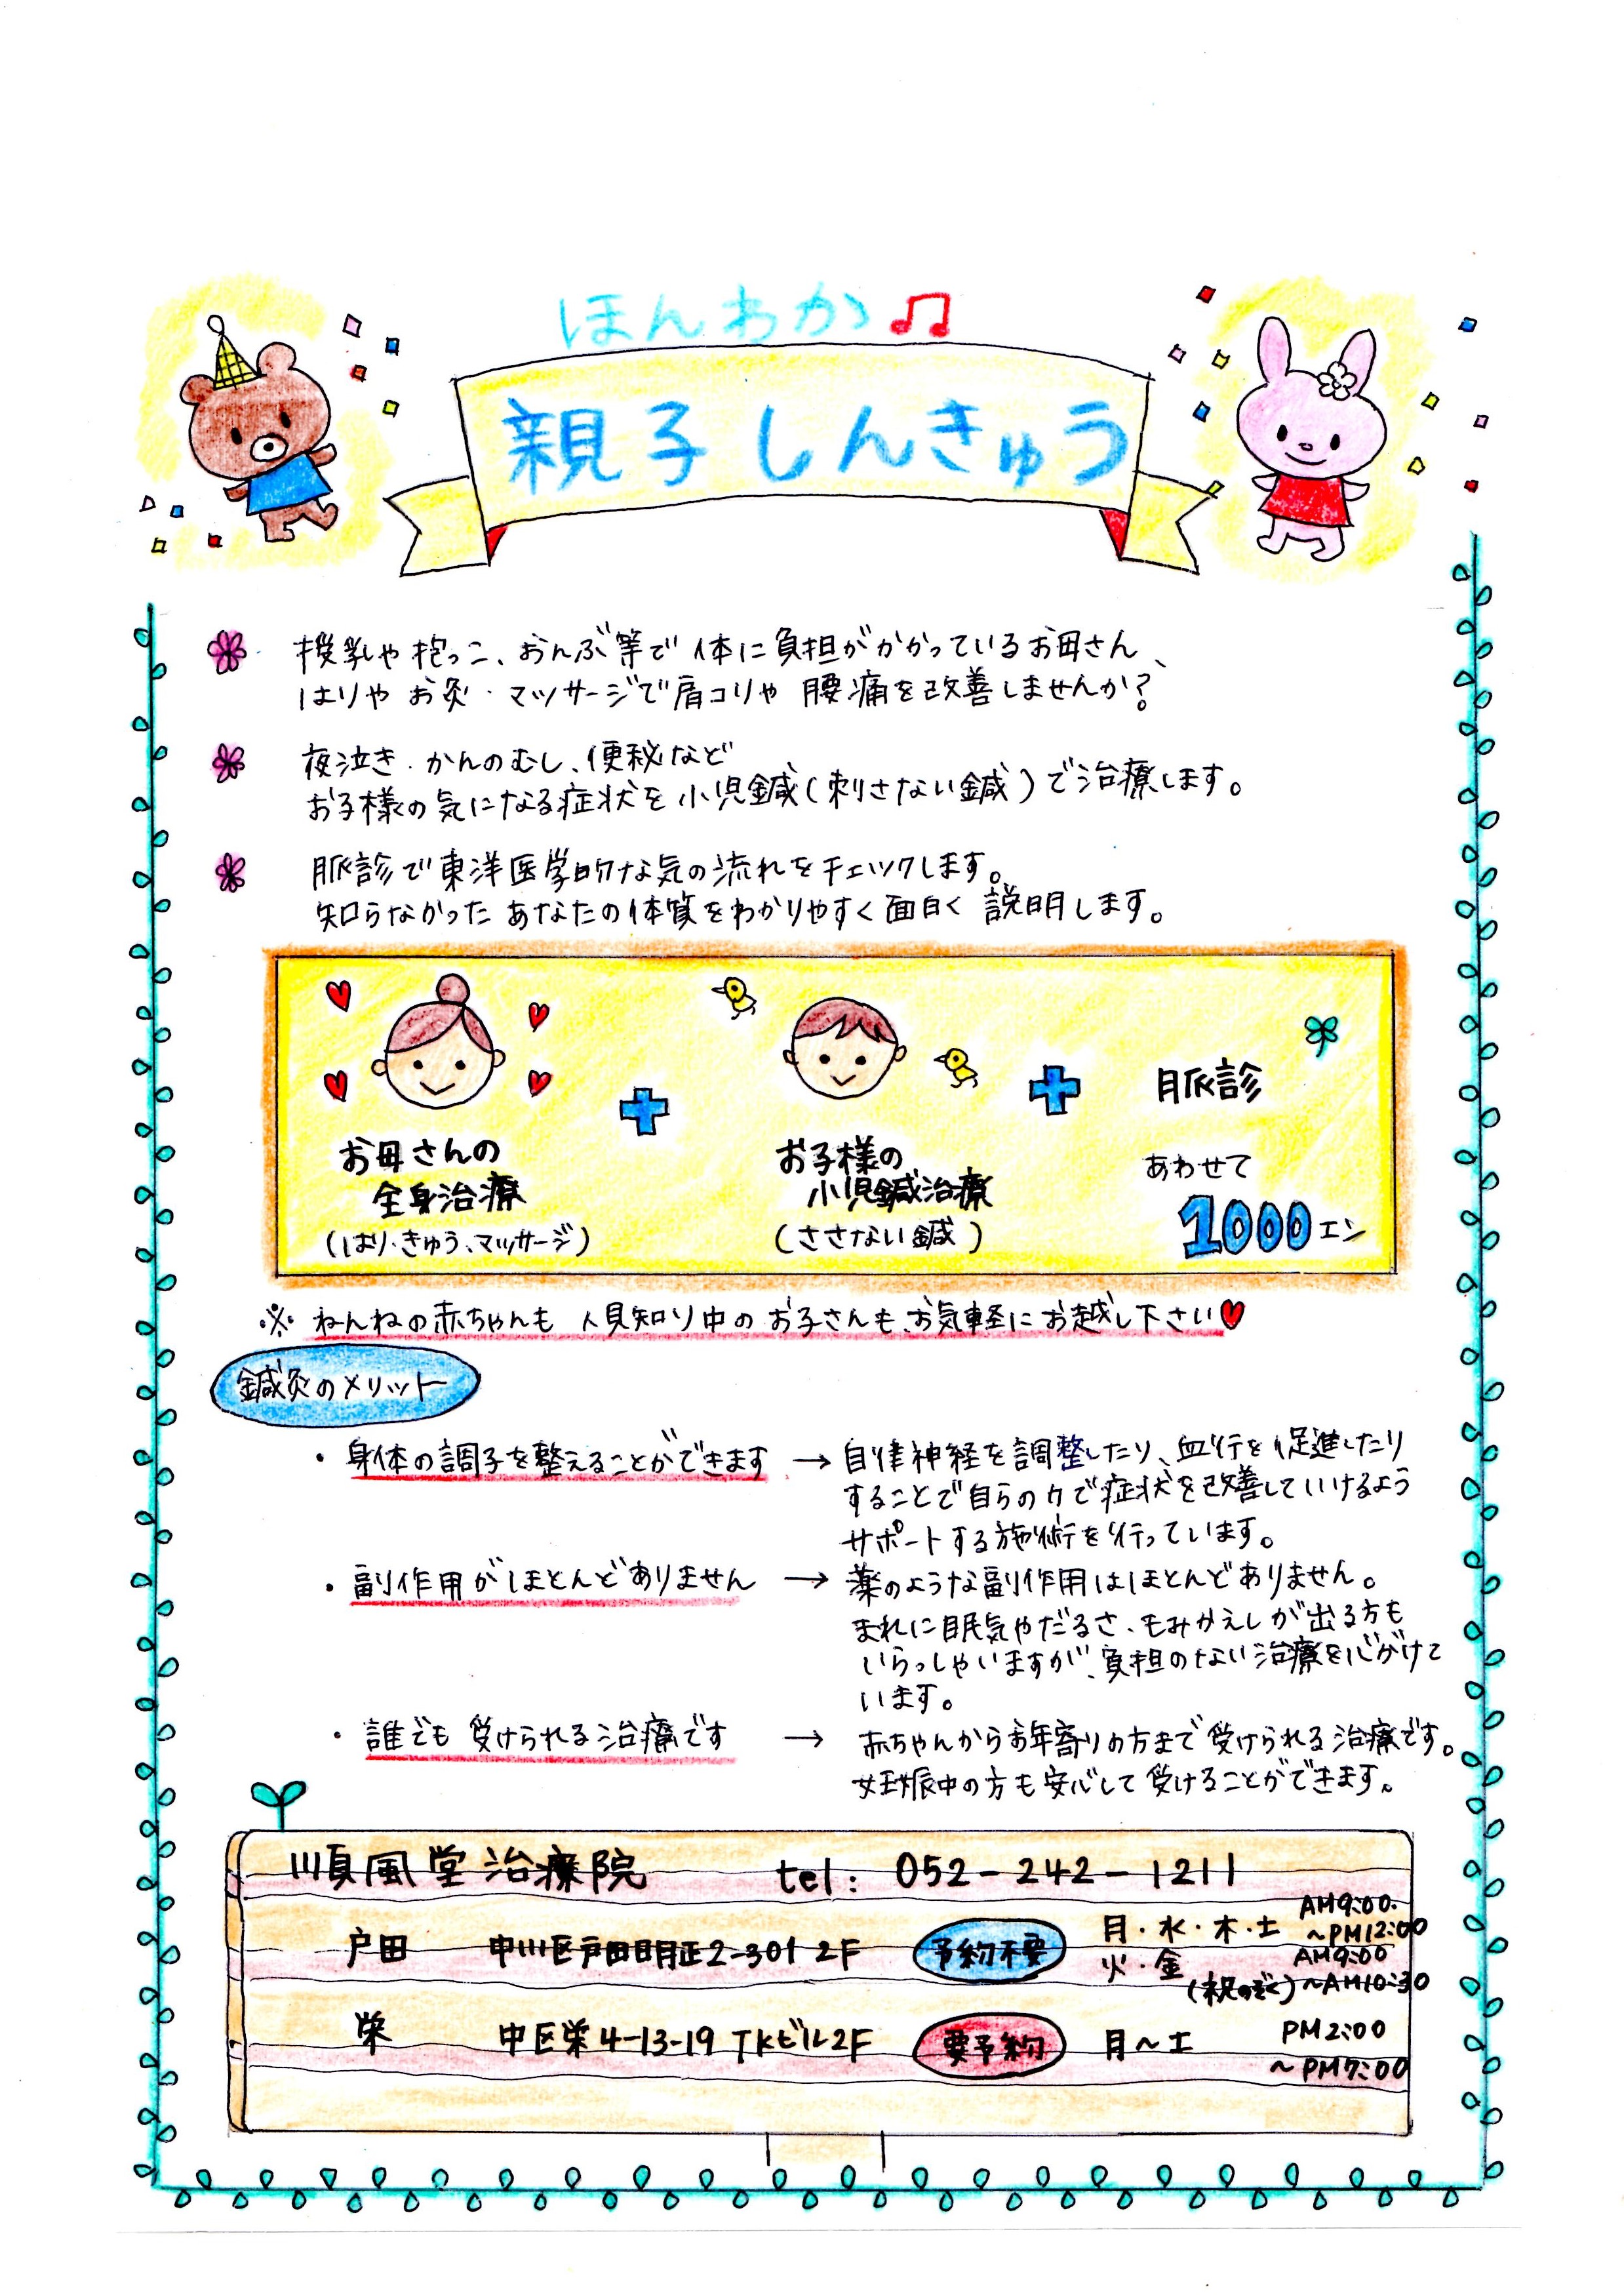 ほんわか♫
親子しんきゅう
授乳や抱っこ、おんぶ等で体に負担がかかっているお母さん、
はりやお灸・マッサージで肩コリや腰痛を改善しませんか?
夜泣き・かんのむし、便秘など
お子様の気になる症状を小児鍼(刺さない鍼)で治療します。
脈診で東洋医学的な気の流れをチェックします。
知らなかったあなたの体質をわかりやすく面白く説明します。
お母さんの
全身治療
(はり・きゅう、マッサージ)
お子様の
小児鍼治療
(ささない鍼)
脈診
あわせて
1000エン
※ねんねの赤ちゃんも人見知り中のお子さんも、お気軽にお越し下さい♥
鍼灸のメリット
・身体の調子を整えることができます → 自律神経を調整したり、血行を促進したり
することで自らの力で症状を改善していけるよう
サポートする施術を行っています。
・副作用がほとんどありません → 薬のような副作用はほとんどありません。
まれに眠気やだるさ、もみかえしが出る方も
いらっしゃいますが、負担のない治療を心がけて
います。
・誰でも受けられる治療です → 赤ちゃんからお年寄りの方まで受けられる治療です。
妊娠中の方も安心して受けることができます。
順風堂治療院 tel: 052-242-1211
戸田 中川区戸田明正2-301 2F 予約不要 月・水・木・土 AM9:00.
~PM12:00
火・金 AM9:00
(祝のぞく) ~AM10:30
栄 中区栄4-13-19 TKビル2F 要予約 月~土 PM2:00
~PM7:00